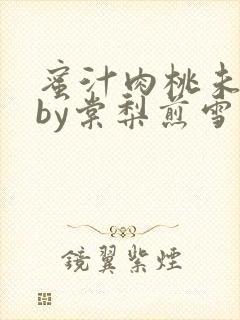 蜜汁肉桃未
by棠梨煎雪
镜翼紫煙